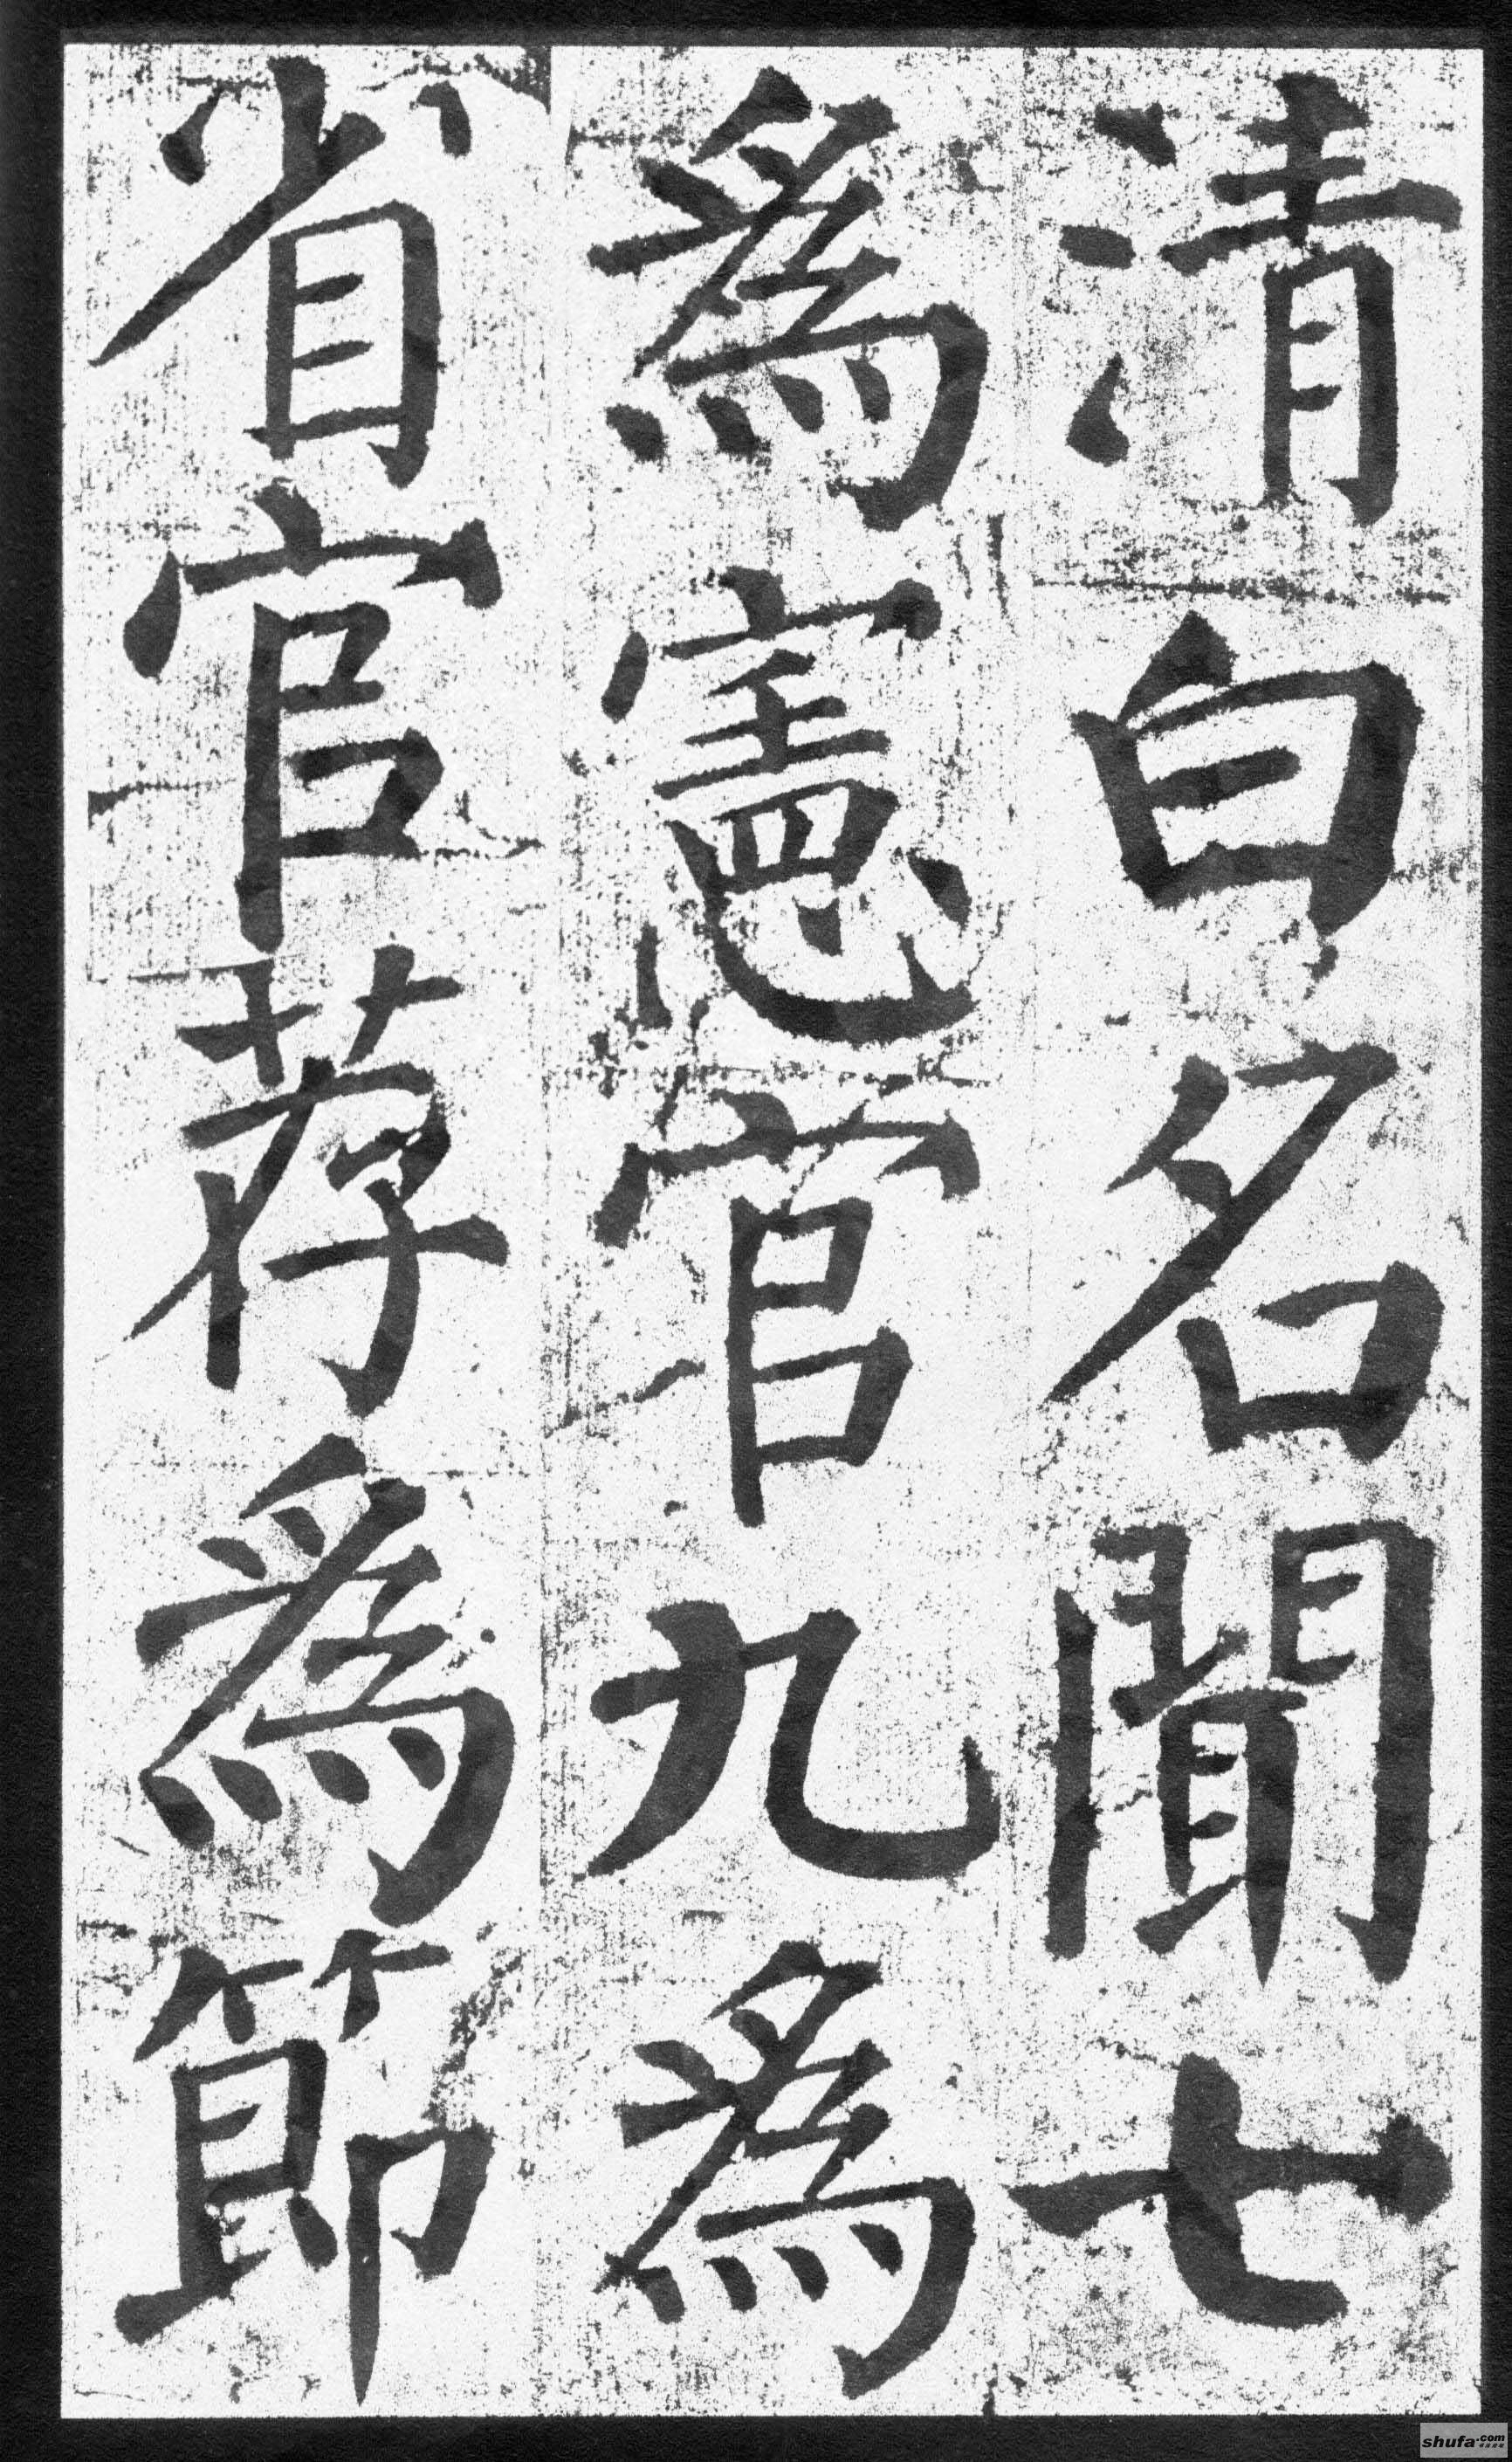 清白名聞七
為憲官九為
省官荐為節
shufa.com